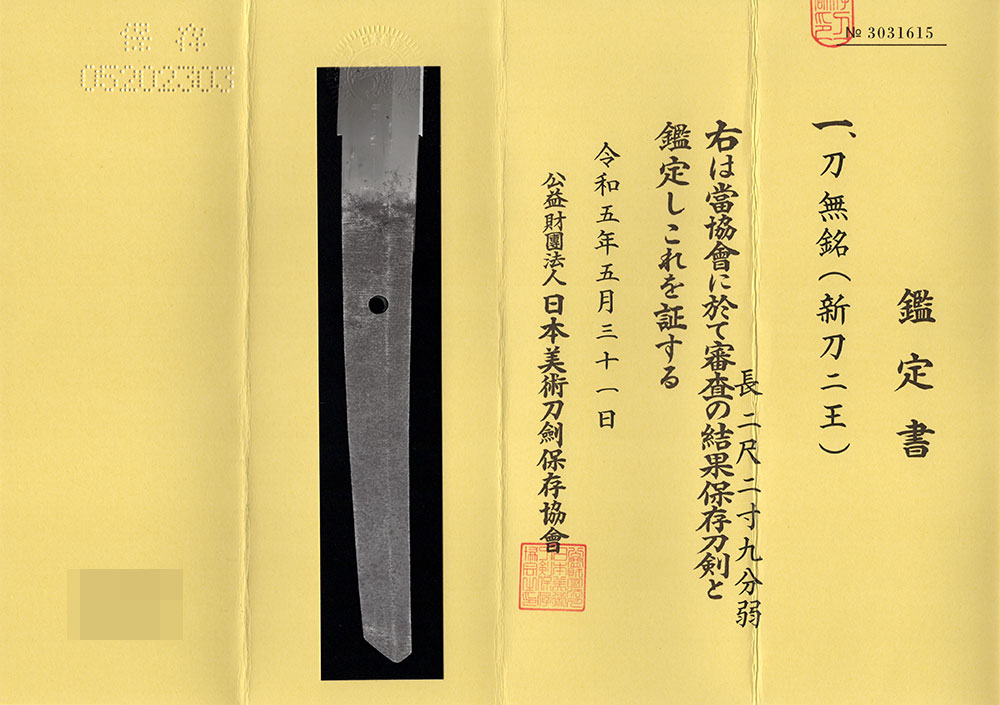 № 3031615
鑑定書
一、刀無銘(新刀二王)
長二尺二寸九分弱
右は當協會に於て審査の結果保存刀剣と
鑑定しこれを証する
令和五年五月三十一日
公益財團法人日本美術刀劍保存協會
保存
05202303